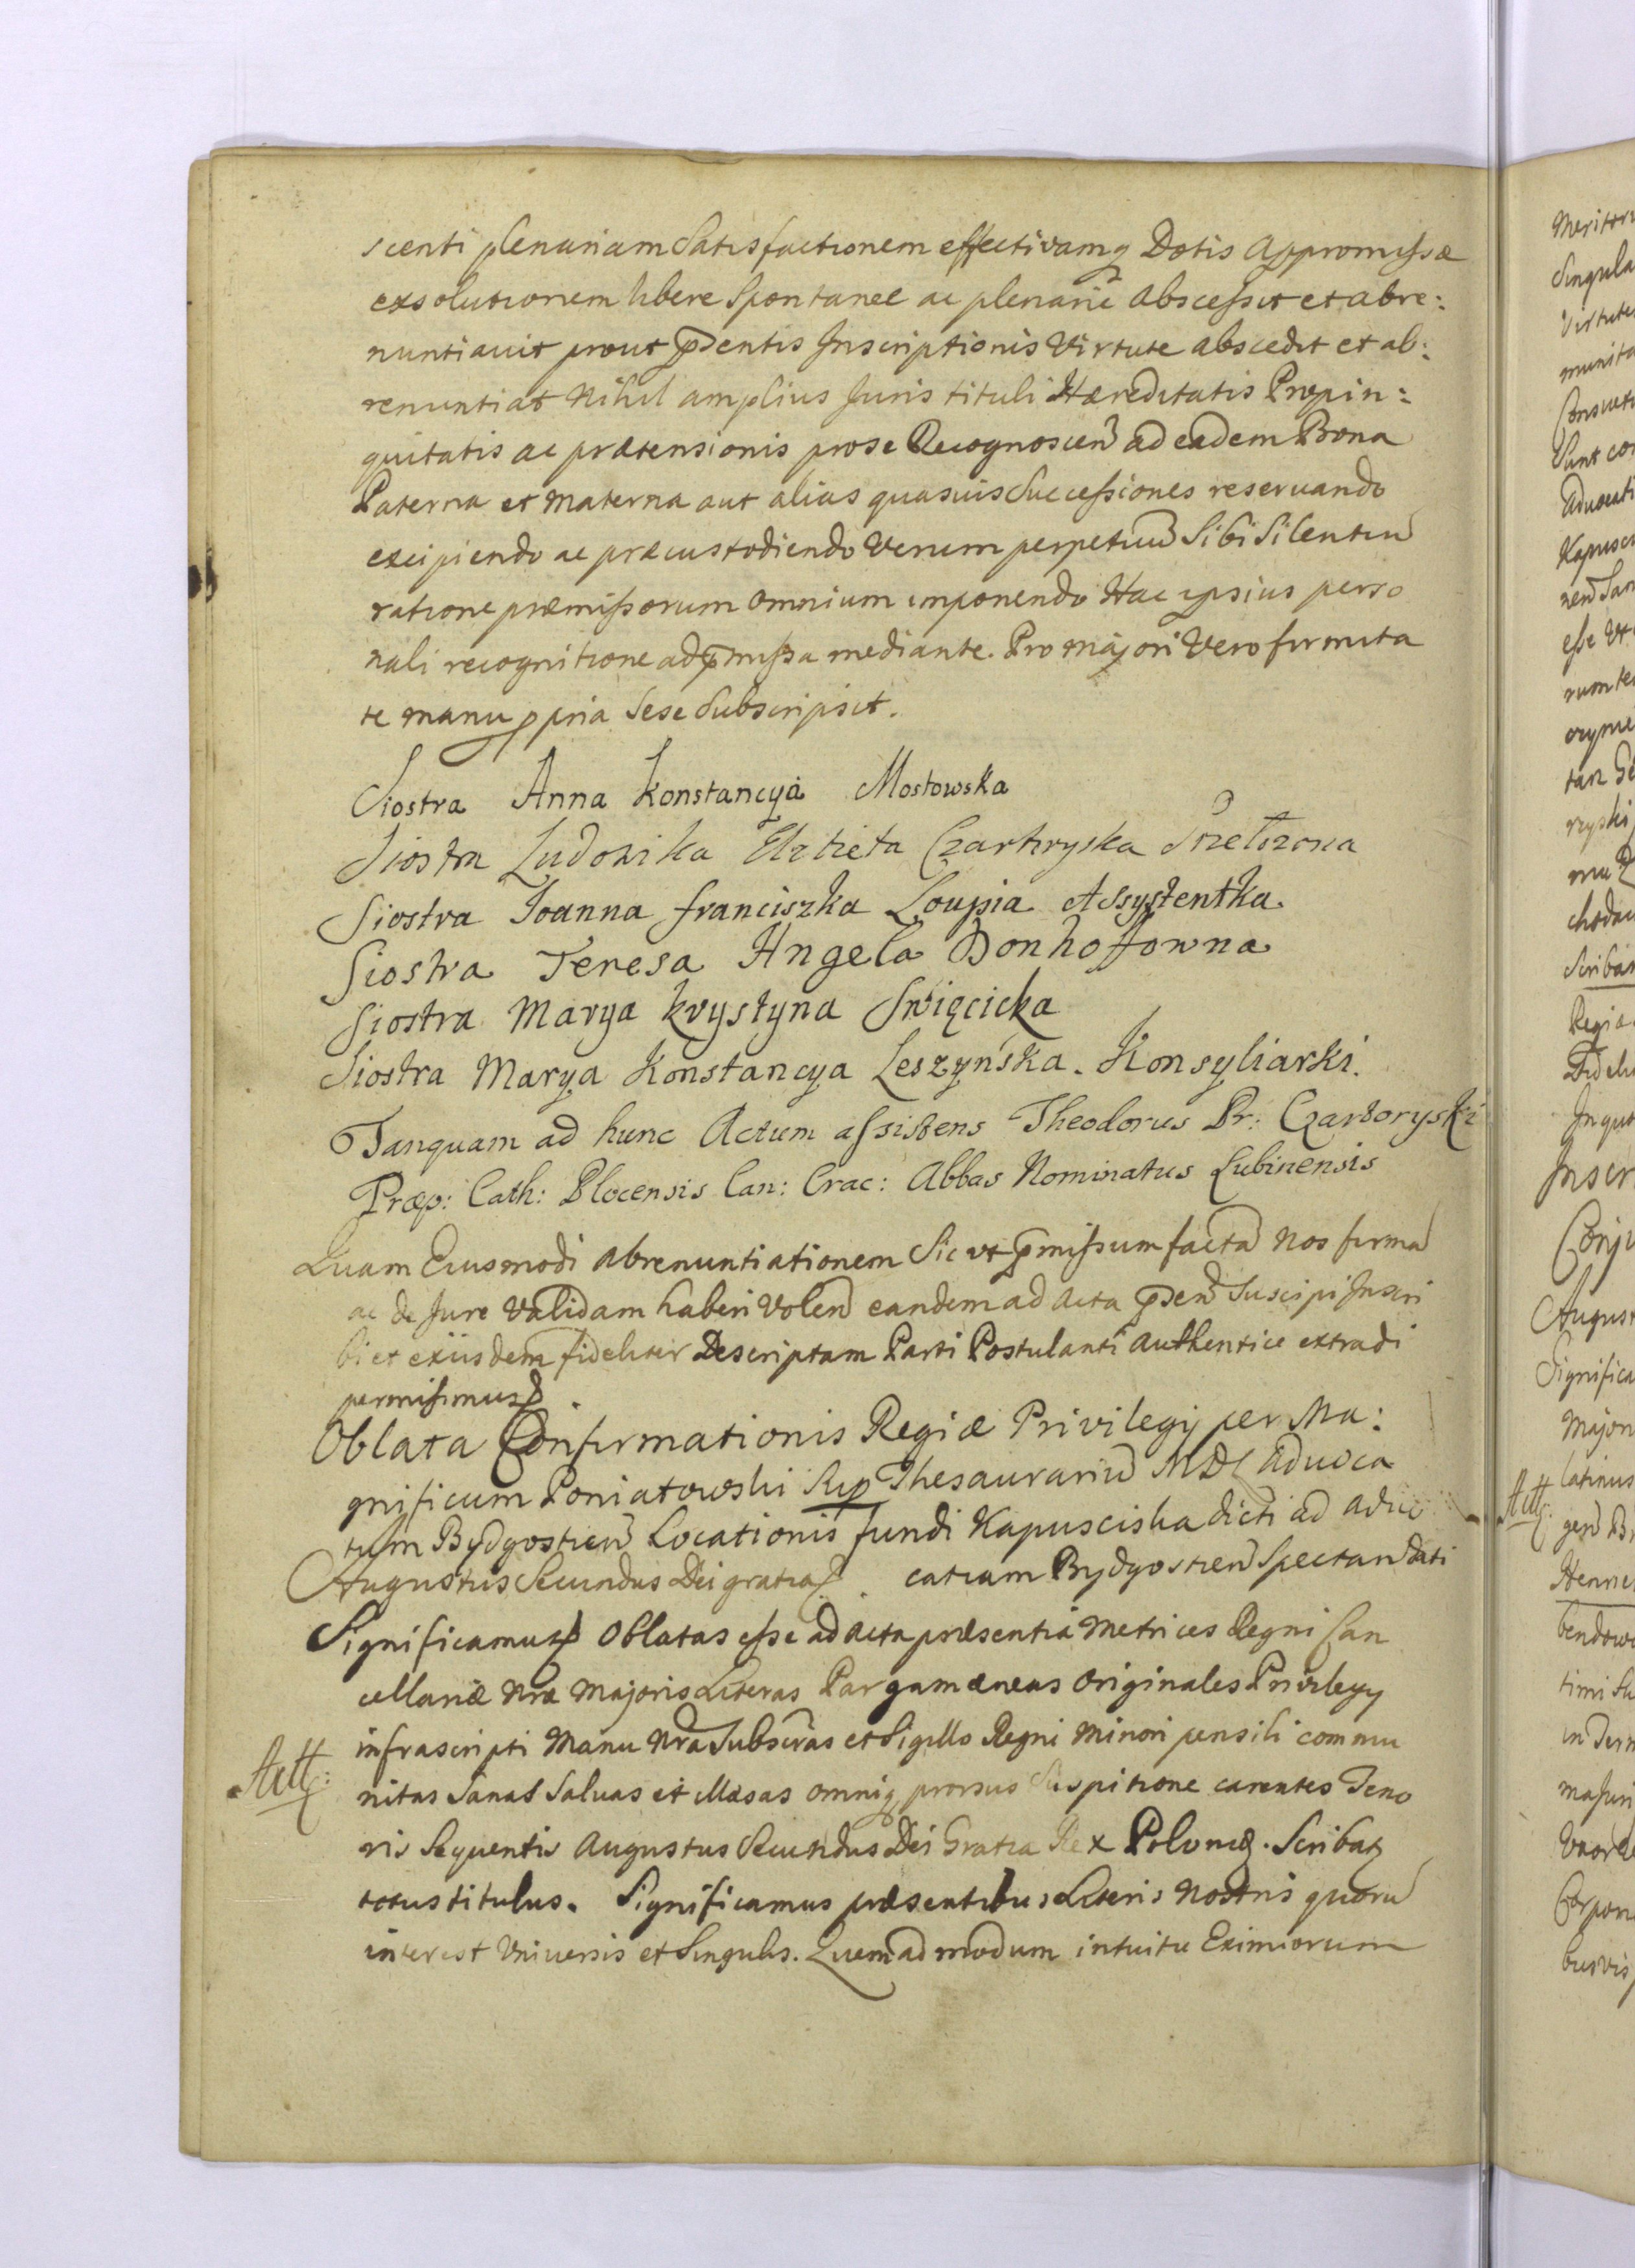 scenti plenariam Satisfactionem effectivamq Dotis Appromissæ
exsolutionem libere Spontanee ac plenarie Abscessit et abre:
nuntiavit prout pdentis Inscriptionis Virtute abscedit et ab:
renuntiat Nihil amplius Juris tituli Hæreditatis Propin:
quitatis ac prætensionis pro se Recognoscen ad eadem Bona
Paterna et Materna aut alias quasuis Successiones reservando
excipiendo ac præcustodiendo Verum perpetuu Sibi Silentiu
ratione præmissorum Omnium imponendo Hac ipsius perso
nali recognitione ad pmissa mediante. Pro majori Vero firmita
te manu ppria Sese Subscripsit.
Siostra Anna Konstancya Mostowska
Siostra Ludowika Elzbieta Czartoryska Przełozona
Siostra Joanna franciszka Loupia Assystentka.
Siostra Teresa Angela Donhofowna
Siostra Marya krystyna Swięcicka
Siostra Marya Konstancya Leszyńska. Konsyliarki.
Tanquam ad hunc Actum assistens Theodorus Pr: Czartoryski
Præp: Cath: Plocensis Can: Crac: Abbas Nominatus Lubinensis
Quam Eiusmodi abrenuntiationem Sic vt pmissum facta Nos firma
ac de Jure Validam haberi Volen eandem ad Acta pden Suscipi Inscri
bi et exiisdem fideliter Descriptam Parti Postulanti authentice extradi
permisimus
Oblata Confirmationis Regiæ Privilegij per Ma:
gnificum Poniatowski Sup Thesaurariu MDL Aduoca
tum Bydgostien Locationis fundi Kapuscisha dicti ad Aduo
catiam Bydgostien Spectan dati
Augustus Secundus Dei gratia
Significamus Oblatas esse ad Acta præsentia Metrices Regni Can
cellariæ Nræ Majoris Literas Pargamæneas Originales Privilegy
infrascripti Manu Nra Subscras et Sigillo Regni Minori pensili commu
nitas Sanas Saluas et illæsas omniq prorsus Suspitione carentes Teno
ris Sequentis Augustus Secundus Dei Gratia Rex Poloniæ. Scribat
totus titulus. Significamus præsentibus Literis Nostris quoru
interest Vniuersis et Singulis. Quemadmodum intuitu Eximiorum